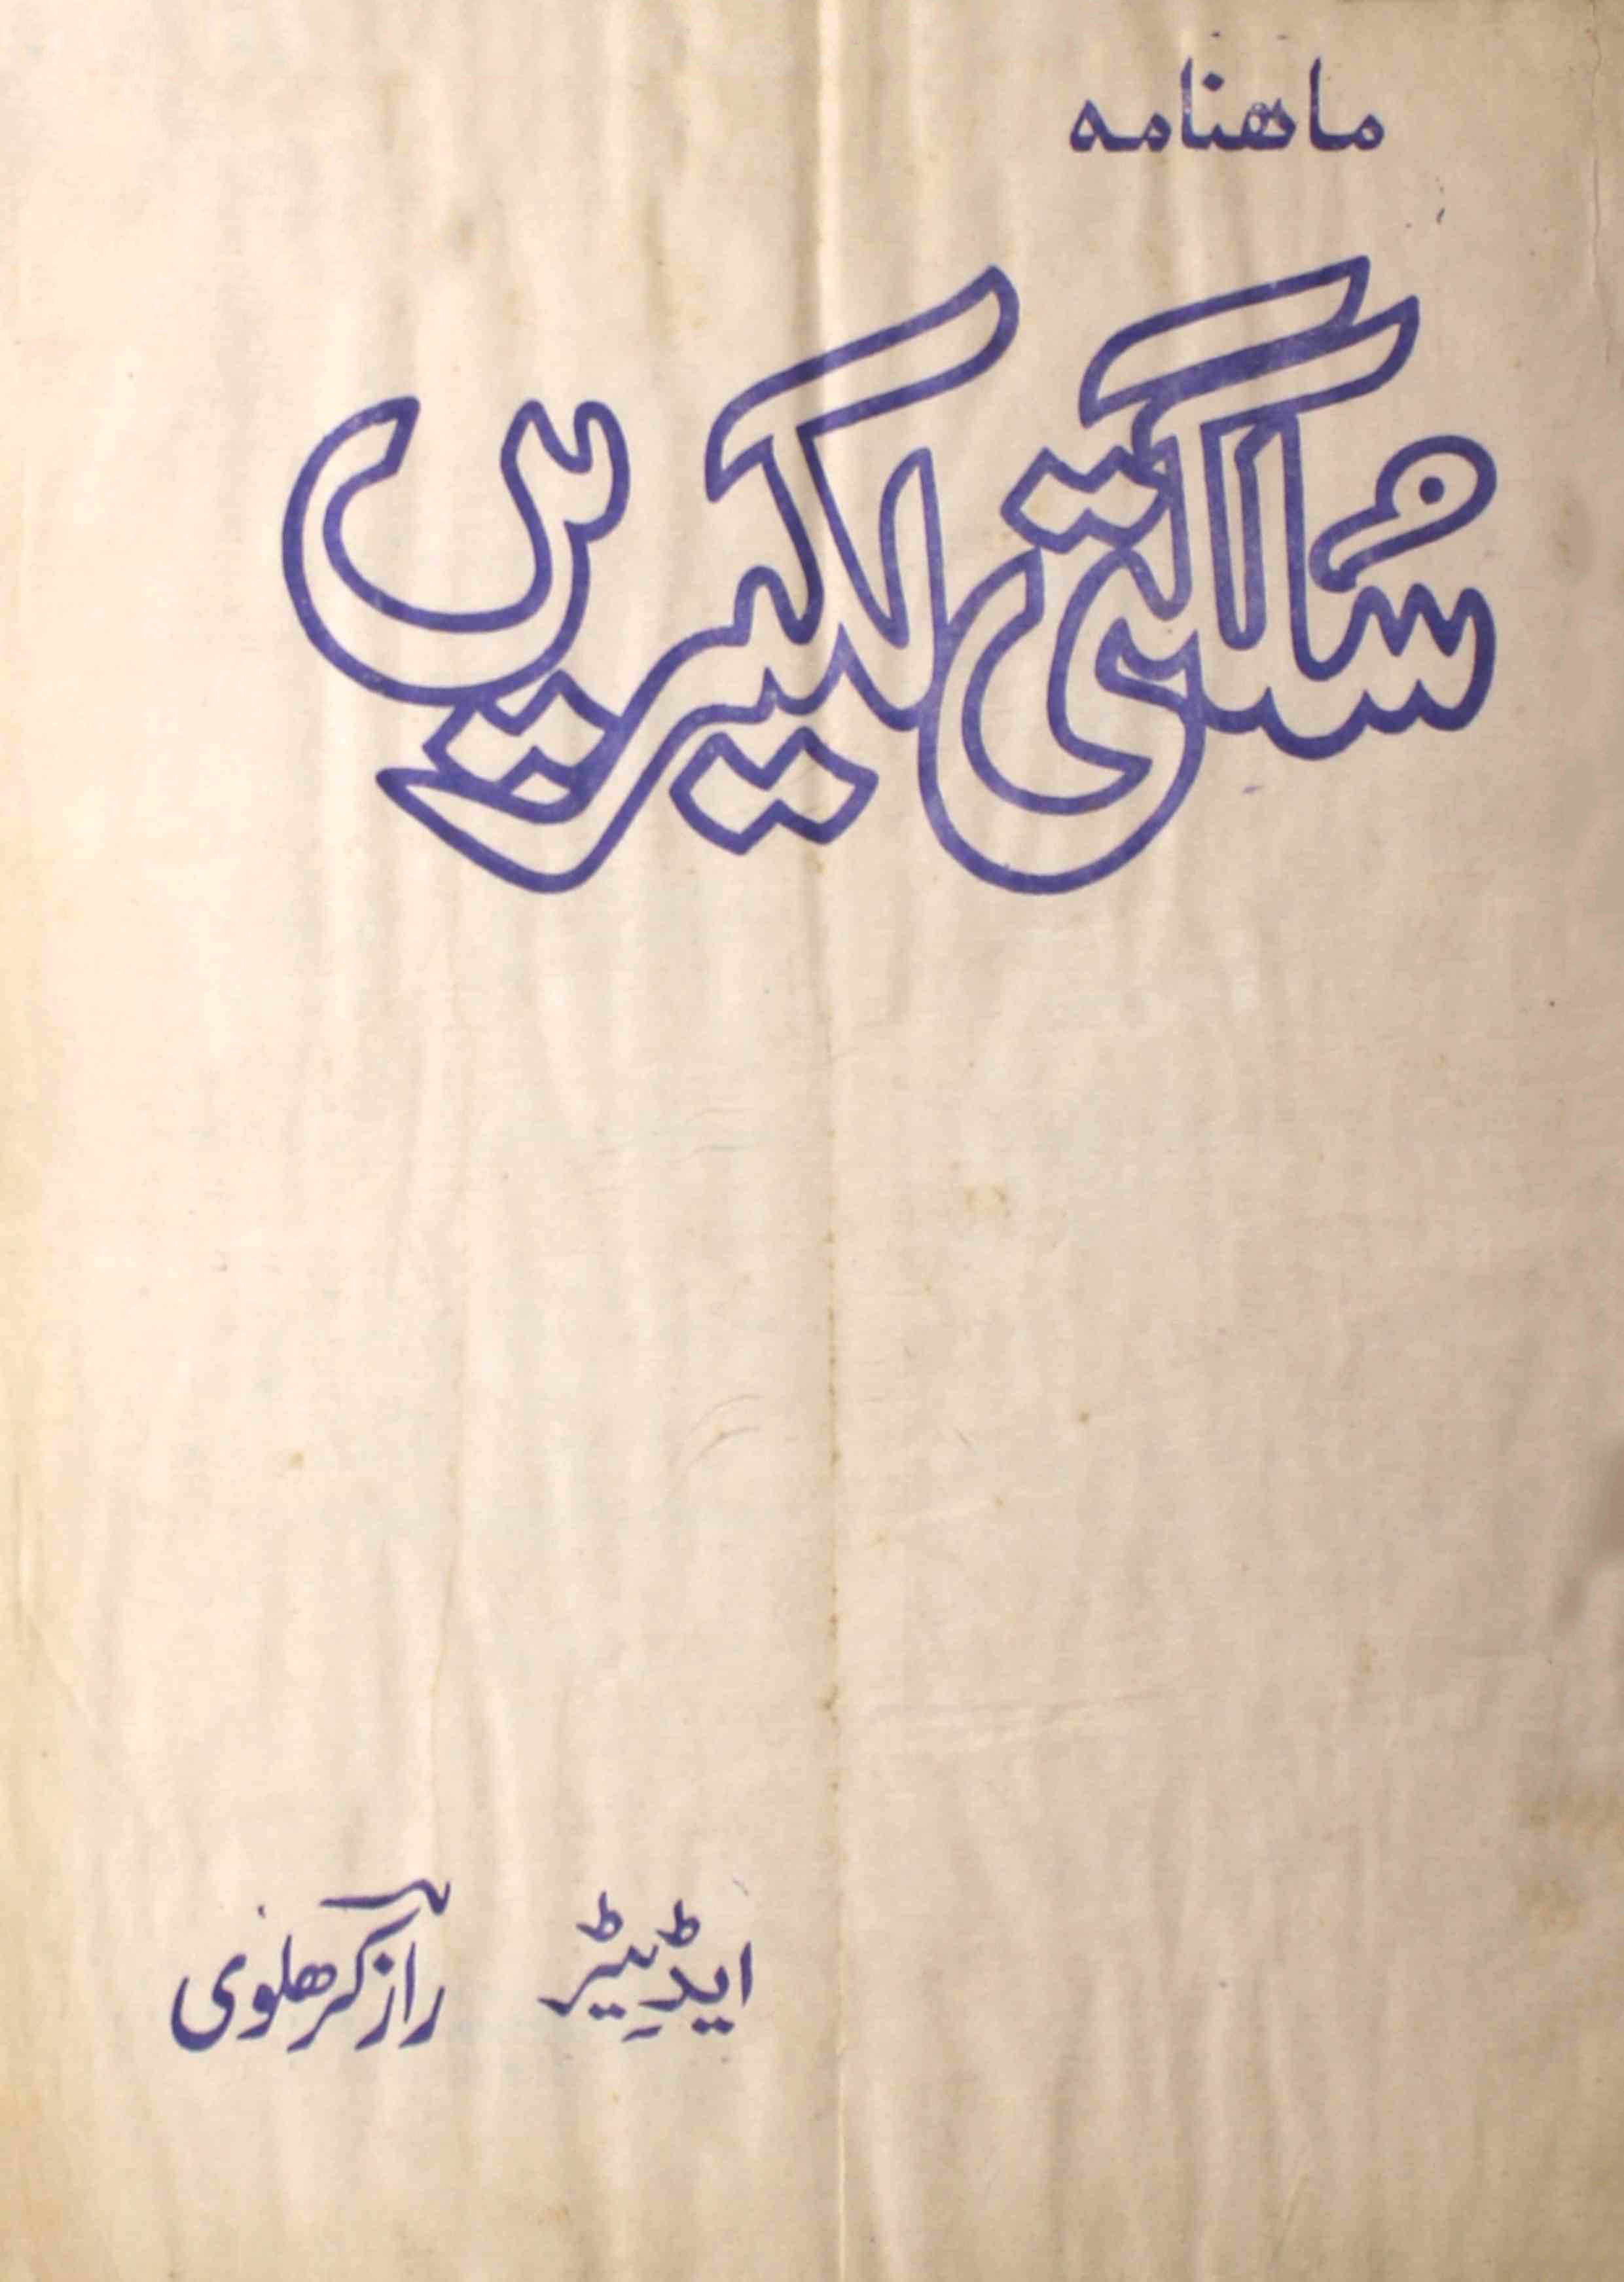 ماهنامه
سُلگتی لکیریں
ایڈیٹر راز کرھلوی